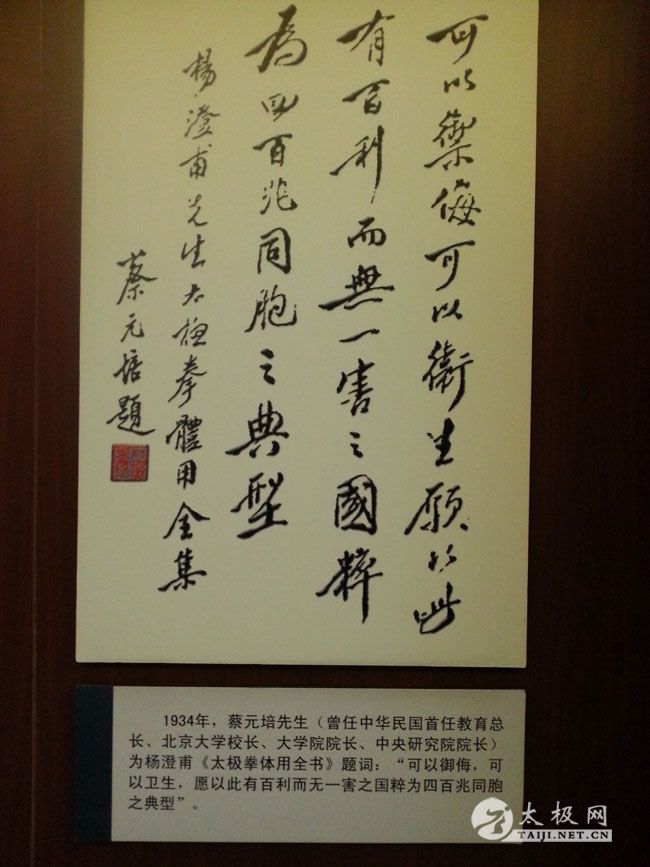 可以禦侮可以衛生願以此
有百利而無一害之國粹
為四百兆同胞之典型
楊澄甫先生太極拳體用全集
蔡元培題
1934年，蔡元培先生（曾任中华民国首任教育总
长、北京大学校长、大学院院长、中央研究院院长）
为杨澄甫《太极拳体用全书》题词：“可以御侮，可
以卫生，愿以此有百利而无一害之国粹为四百兆同胞
之典型”。
太极网
TAIJI.NET.CN